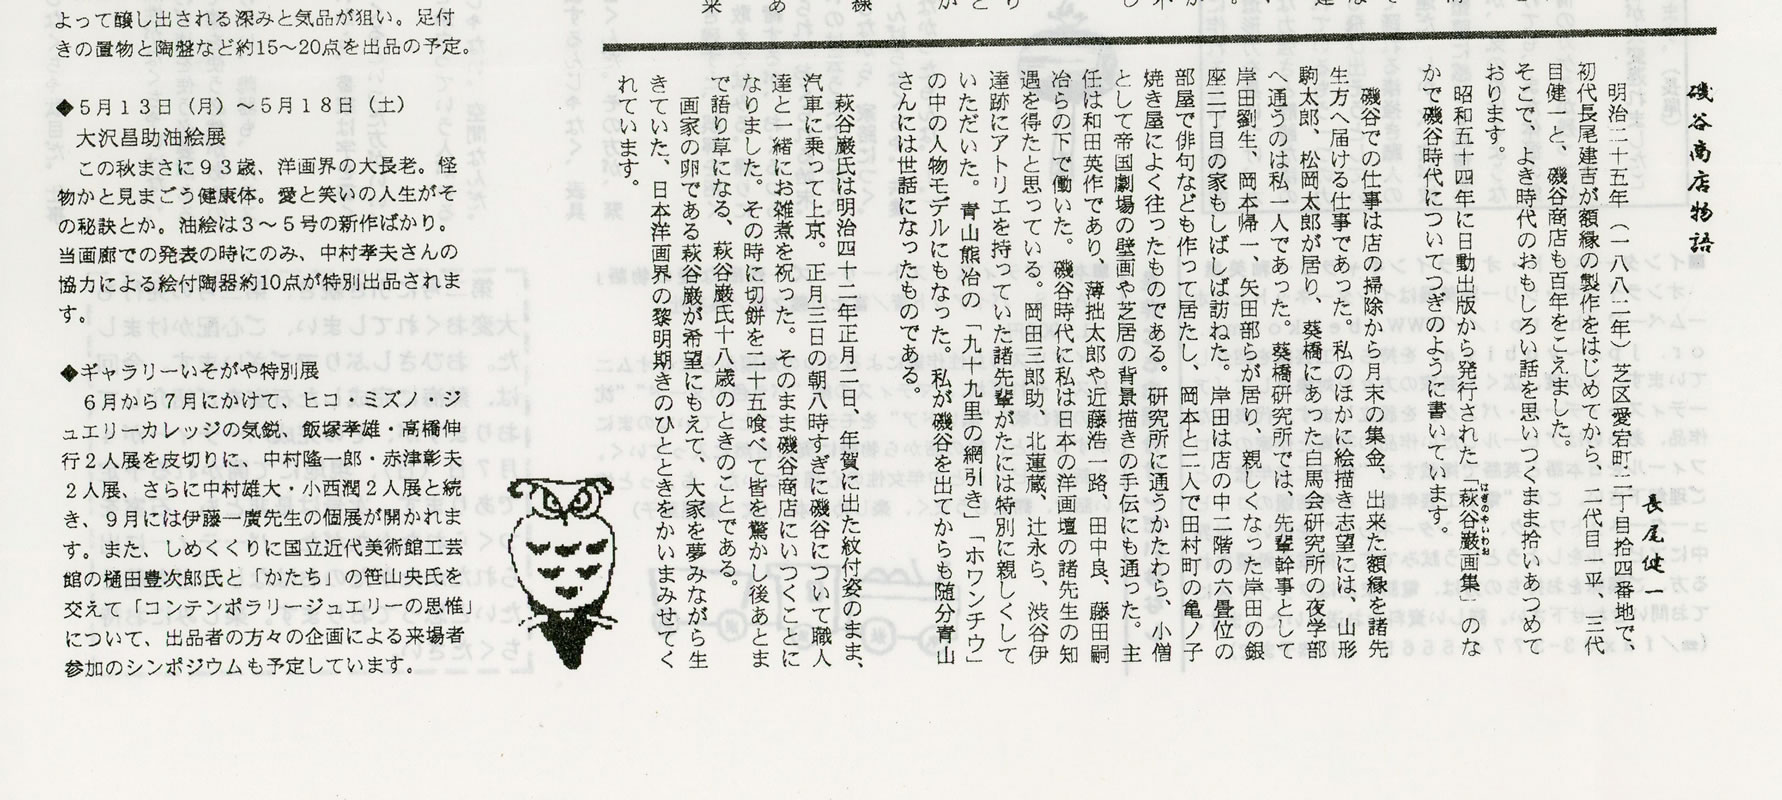 磯谷商店物語
長尾健一
明治二十五年（一八八二年）芝区愛宕町二丁目拾四番地で、
初代長尾建吉が額縁の製作をはじめてから、二代目一平、三代
目健一と、磯谷商店も百年をこえました。
そこで、よき時代のおもしろい話を思いつくまま拾いあつめて
おります。
昭和五十四年に日動出版から発行された「萩谷巌画集」のな
はぎのやいわお
かで磯谷時代についてつぎのように書いています。
磯谷での仕事は店の掃除から月末の集金、出来た額縁を諸先
生方へ届ける仕事であった。私のほかに絵描き志望には、山形
駒太郎、松岡太郎が居り、葵橋にあった白馬会研究所の夜学部
へ通うのは私一人であった。葵橋研究所では、先輩幹事として
岸田劉生、岡本帰一、矢田部らが居り、親しくなった岸田の銀
座二丁目の家もしばしば訪ねた。岸田は店の中二階の六畳位の
部屋で俳句なども作って居たし、岡本と二人で田村町の亀ノ子
焼き屋によく往ったものである。研究所に通うかたわら、小僧
として帝国劇場の壁画や芝居の背景描きの手伝にも通った。主
任は和田英作であり、薄拙太郎や近藤浩一路、田中良、藤田嗣
冶らの下で働いた。磯谷時代に私は日本の洋画壇の諸先生の知
遇を得たと思っている。岡田三郎助、北蓮蔵、辻永ら、渋谷伊
達跡にアトリエを持っていた諸先輩がたには特別に親しくして
いただいた。青山熊冶の「九十九里の網引き」「ホワンチウ」
の中の人物モデルにもなった。私が磯谷を出てからも随分青山
さんには世話になったものである。
萩谷巌氏は明治四十二年正月二日、年賀に出た紋付姿のまま、
汽車に乗って上京。正月三日の朝八時すぎに磯谷について職人
達と一緒にお雑煮を祝った。そのまま磯谷商店にいつくことに
なりました。その時に切餅を二十五喰べて皆を驚かし後あとま
で語り草になる、萩谷巌氏十八歳のときのことである。
画家の卵である萩谷巌が希望にもえて、大家を夢みながら生
きていた、日本洋画界の黎明期きのひとときをかいまみせてく
れています。
よって醸し出される深みと気品が狙い。足付
きの置物と陶盤など約15～20点を出品の予定。
◆５月１３日（月）～５月１８日（土）
大沢昌助油絵展
この秋まさに９３歳、洋画界の大長老。怪
物かと見まごう健康体。愛と笑いの人生がそ
の秘訣とか。油絵は３～５号の新作ばかり。
当画廊での発表の時にのみ、中村孝夫さんの
協力による絵付陶器約10点が特別出品されま
す。
◆ギャラリーいそがや特別展
６月から７月にかけて、ヒコ・ミズノ・ジ
ュエリーカレッジの気鋭、飯塚孝雄・高橋伸
行２人展を皮切りに、中村隆一郎・赤津彰夫
２人展、さらに中村雄大・小西潤２人展と続
き、９月には伊藤一廣先生の個展が開かれま
す。また、しめくくりに国立近代美術館工芸
館の樋田豊次郎氏と「かたち」の笹山央氏を
交えて「コンテンポラリージュエリーの思惟」
について、出品者の方々の企画による来場者
参加のシンポジウムも予定しています。